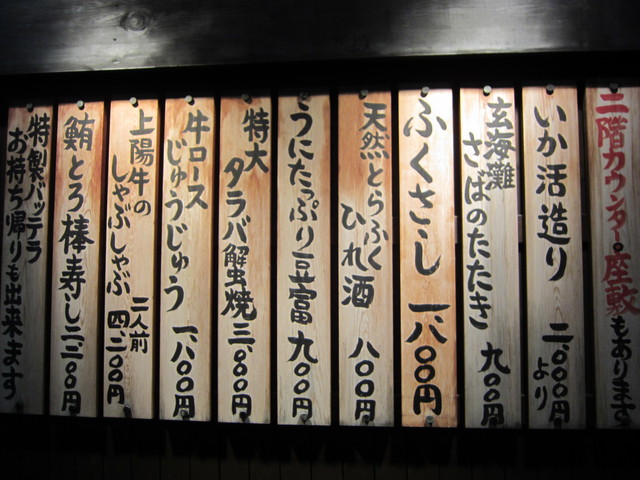 二階カウンター。座敷もあります
いか活造り 二、〇〇〇円より
玄海灘
さばのたたき 九〇〇円
ふくさし 一、八〇〇円
天然とらふく
ひれ酒 八〇〇円
うにたっぷり豆富 九〇〇円
特大
タラバ蟹焼 三、〇〇〇円
牛ロース
じゅうじゅう 一、八〇〇円
上陽牛の
しゃぶしゃぶ 二人前
四、二〇〇円
鮪とろ棒寿し 二、二〇〇円
特製バッテラ
お持ち帰りも出来ます